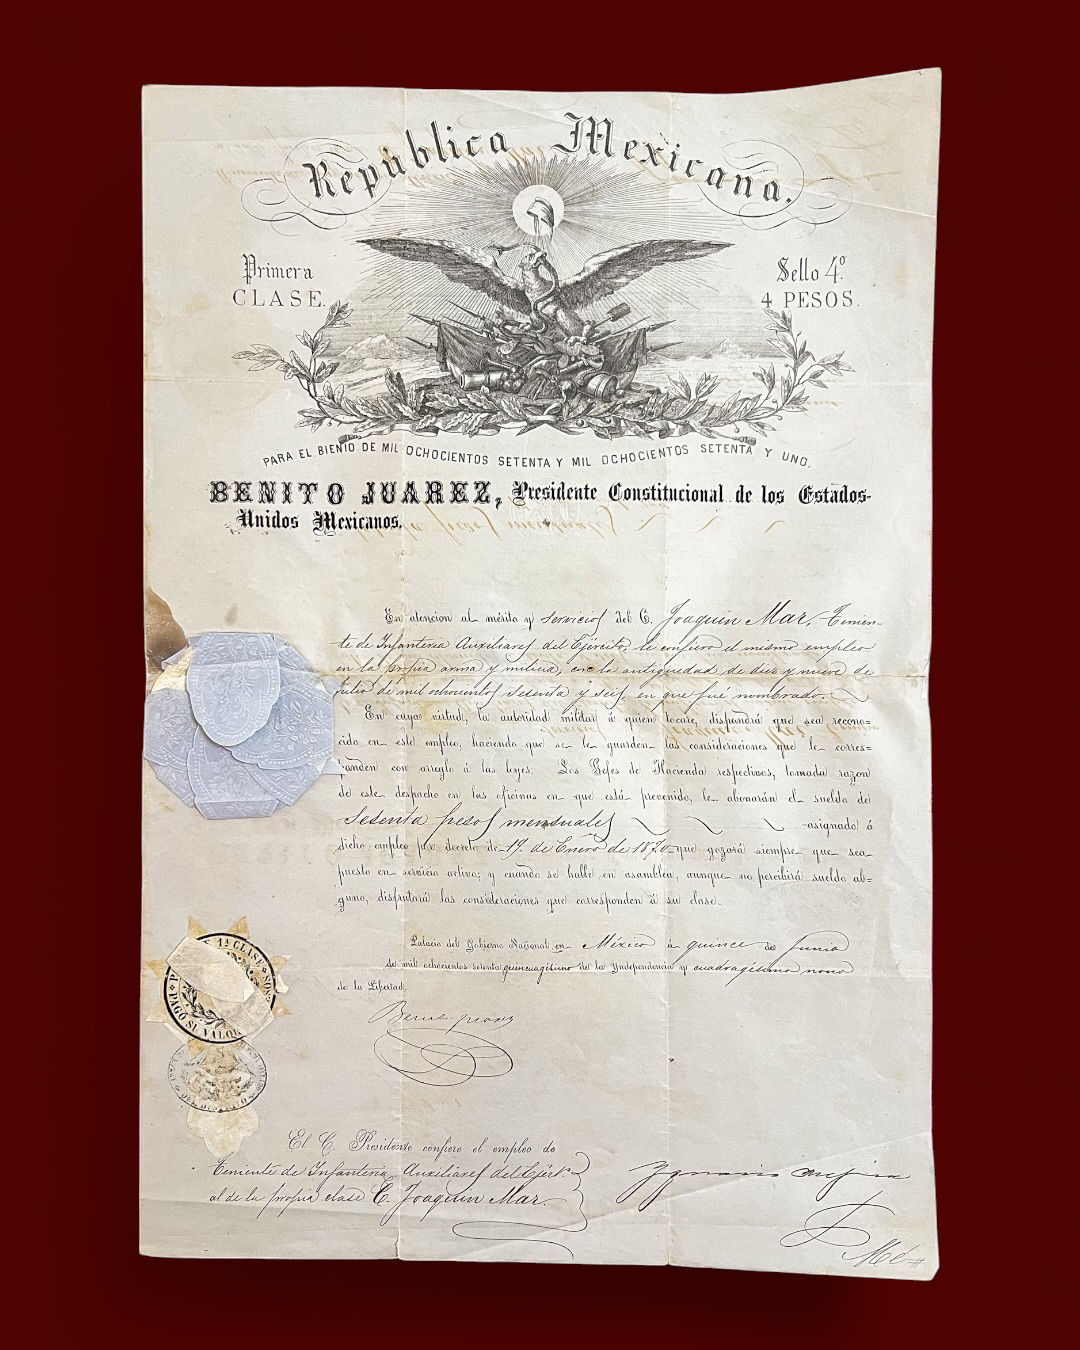 República Mexicana.
Primera
CLASE.
Sello 4º
4 PESOS.
PARA EL BIENIO DE MIL OCHOCIENTOS SETENTA Y MIL OCHOCIENTOS SETENTA Y UNO.
BENITO JUAREZ, Presidente Constitucional de los Estados-
Unidos Mexicanos.
En atencion al mérito y servicios del C. Joaquin Mar, Tenien-
te de Infanteria Auxiliares del Ejército, le confiero el mismo empleo
en la propia arma y milicia, con la antiguedad de diez y nueve de
Julio de mil ochocientos sesenta y seis, en que fué nombrado.
En cuya virtud, la autoridad militar á quien tocare, dispondrá que sea recono-
cido en este empleo, haciendo que se le guarden las consideraciones que le corres-
ponden con arreglo á las leyes. Los Gefes de Hacienda respectivos, tomada razon
de este despacho en las oficinas en que está prevenido, le abonarán el sueldo de
Sesenta pesos mensuales asignado á
dicho empleo por decreto de 1º de Enero de 1870 que gozará siempre que sea
puesto en servicio activo; y cuando se halle en asamblea, aunque no percibirá sueldo al-
guno, disfrutará las consideraciones que corresponden á su clase.
Palacio del Gobierno Nacional en México á quince de Junio
de mil ochocientos setenta, quincuagésimo de la Independencia y cuadragésimo nono
de la Libertad.
Benito Juarez
1ª CLASE
PAGO SU VALOR
El C. Presidente confiere el empleo de
Teniente de Infanteria Auxiliares del Ejérto.
al de la propia clase C. Joaquin Mar.
Ygnacio Mejia